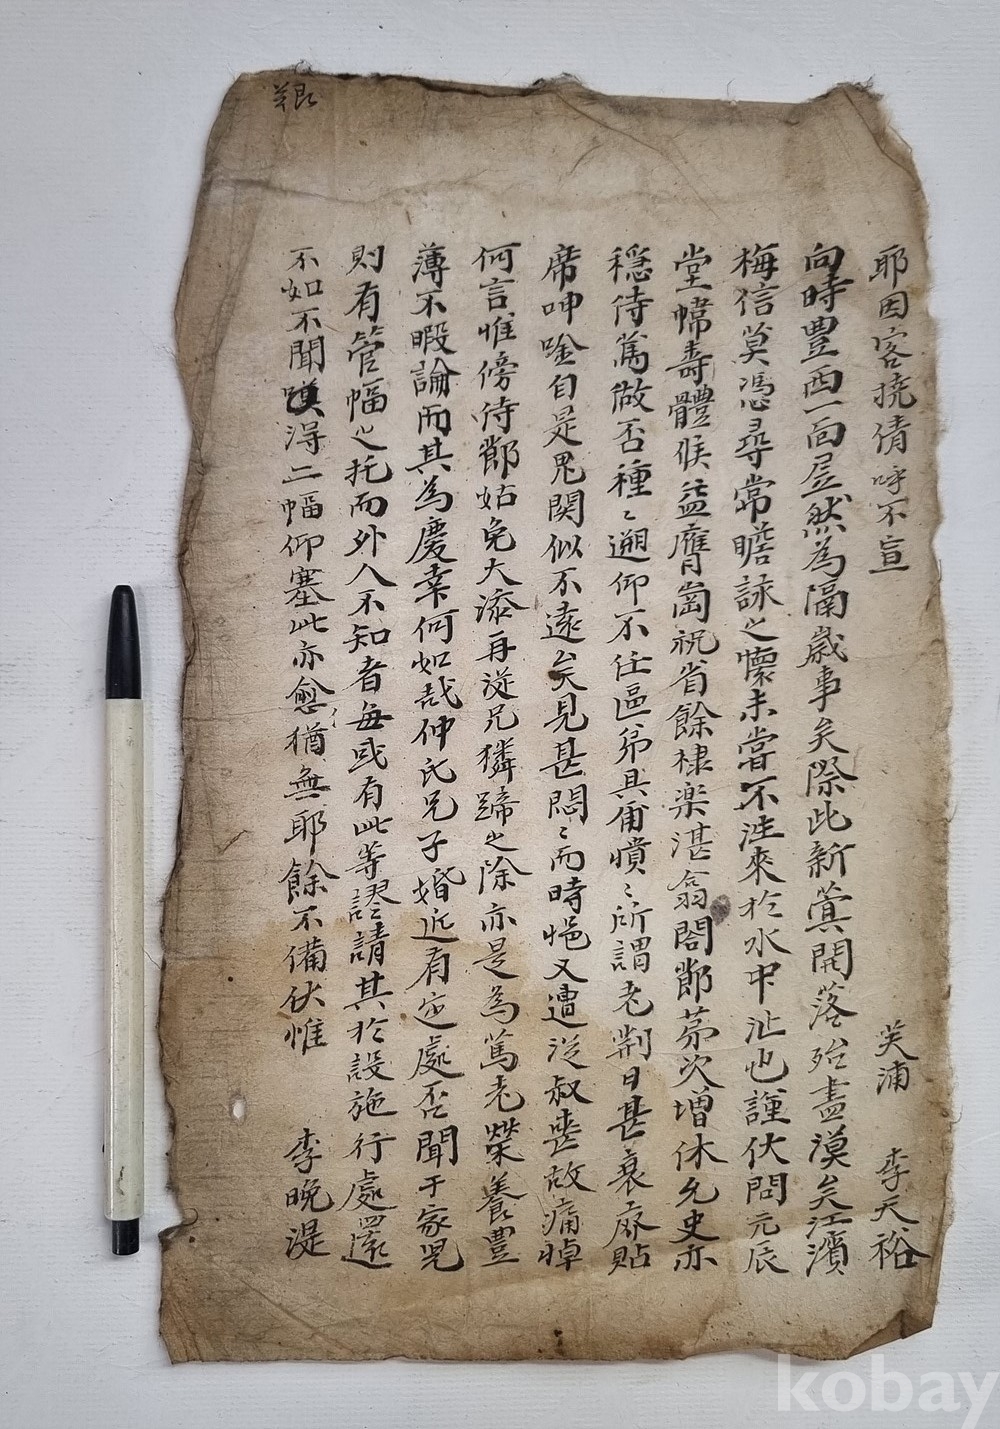 耶因客撓倩呼不宣 芙浦 李天裕
向時豊西一面居然為隔歲事矣際此新蓂開落殆盡漠矣江濱
梅信莫憑尋常瞻詠之懷未嘗不洼來於水中沚也謹伏問元辰
堂幃壽體候益膺崗祝省餘棣楽湛翕閤節茅次增休允史亦
穩侍篤做否種〻遡仰不任區弟具甬憤〻所謂老荆日甚衰床貼
席呻唫自是鬼関似不遠矣見甚悶〻而時悒又遭從叔喪故痛悼
何言惟傍侍節姑免大添再從兄獜蹄之除亦是為篤老榮養豊
薄不暇論而其為慶幸何如哉仲氏兄子婚近有定處否聞于家児
則有管幅之托而外人不知者每或有此等謬請其於設施行處還
不如不聞得二幅仰塞此亦愈猶無耶餘不備伏惟 李晩湜
kobay